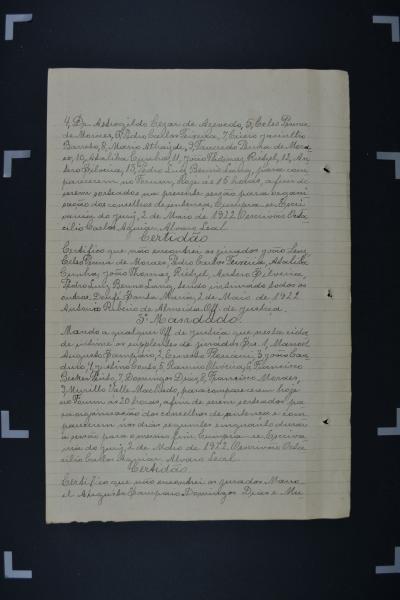 4, Dr. Astrogildo Cezar de Azevedo, 5, Celso Penna
de Moraes, 6, Pedro Carlos Teixeira, 7, Cicero Jacintho
Barreto, 8, Mario Athaide, 9, Penna de Mora-
es, 10, Ataliba Cunha, 11, João Thomaz Rietzel, 12, An-
tero Silveira, 13, Pedro Luiz, para com-
parecerem no Forum, hoje ás 15 horas, afim de
serem sorteados na presente sessão para organi-
sação dos conselhos de sentença. Cumpra-se. Escri-
vania do jury, 2 de Maio de 1922. O escrivão Ota-
cilio Carlos Aguiar. Alvaro Leal
Certidão
Certifico que não encontrei os jurados João
Celso Penna de Moraes, Pedro Carlos Teixeira, Ataliba
Cunha, João Thomaz Rietzel, Antero Silveira,
Pedro Luiz, sendo intimado todos os
outros. Dou fé. Santa Maria, 2 de Maio de 1922
Antonio Ribeiro de Almeida. Off. de justiça.
5º Mandado.
Mando a qualquer Off. de justiça que nesta cida-
de intime os supplentes de jurados Srs. 1, Manoel
Augusto, 2, Ernesto, 3, João
4, Couto, 5, Ramiro Oliveira, 6, Francisco
Becker, 7, Domingos Dias, 8, Francisco Moraes,
9, Murillo Valle Machado, para comparecerem hoje
no Forum ás 20 horas, afim de serem sorteados pa-
ra organisação dos conselhos de sentença e com-
parecerem nos dias seguintes enquanto durar
a sessão para o mesmo fim. Cumpra-se. Escriva-
nia do jury, 2 de Maio de 1922. O escrivão Ota-
cilio Carlos Aguiar. Alvaro Leal
Certidão
Certifico que não encontrei os jurados Mano-
el Augusto Domingos Dias e Mu-